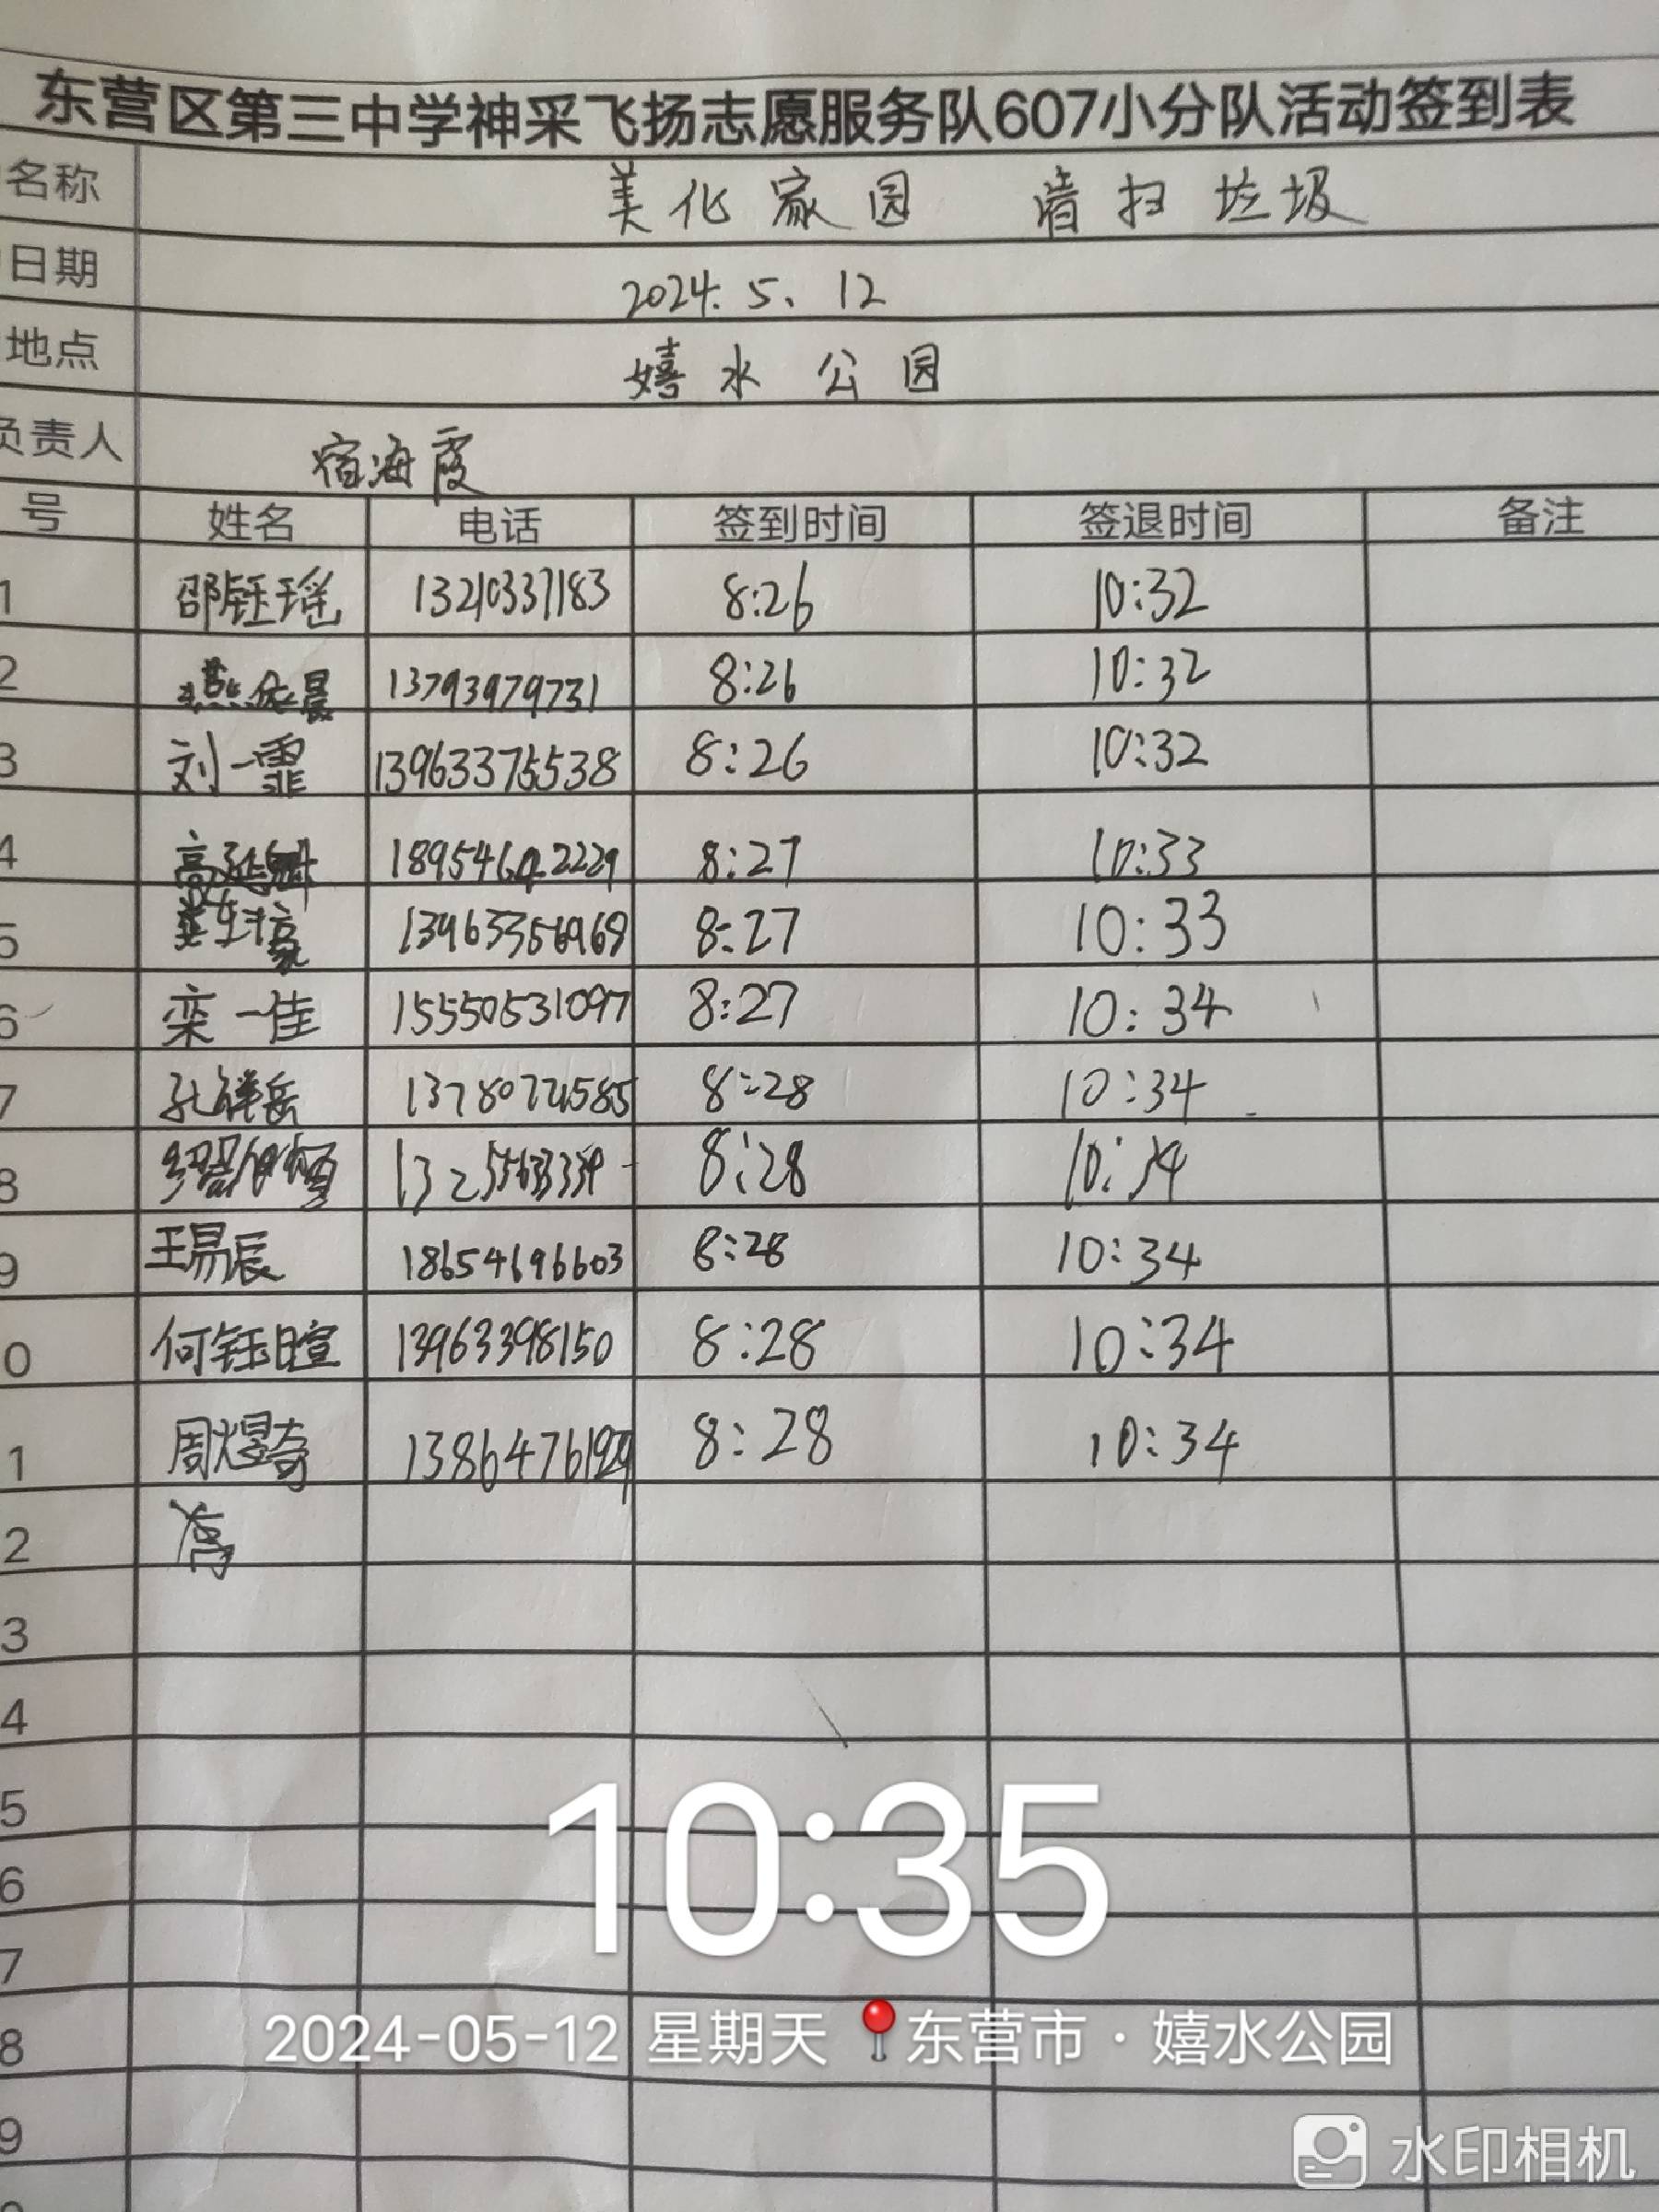 东营区第三中学神采飞扬志愿服务队607小分队活动签到表
名称 美化家园 清扫垃圾
日期 2024.5.12
地点 嬉水公园
负责人 宿海霞
号 姓名 电话 签到时间 签退时间 备注
1 邵钰瑶 13210337183 8:26 10:32
2 燕依晨 13793979731 8:26 10:32
3 刘一霏 13963375538 8:26 10:32
4 18954642229 8:27 10:33
5 8:27 10:33
6 栾一佳 15550531097 8:27 10:34
7 孔祥岳 8:28 10:34
8 8:28 10:34
9 王易辰 18654696603 8:28 10:34
0 何钰暄 13963398150 8:28 10:34
1 周煜奇 8:28 10:34
2
3
4
5
6
7
8
9
10:35
2024-05-12 星期天 东营市·嬉水公园
水印相机